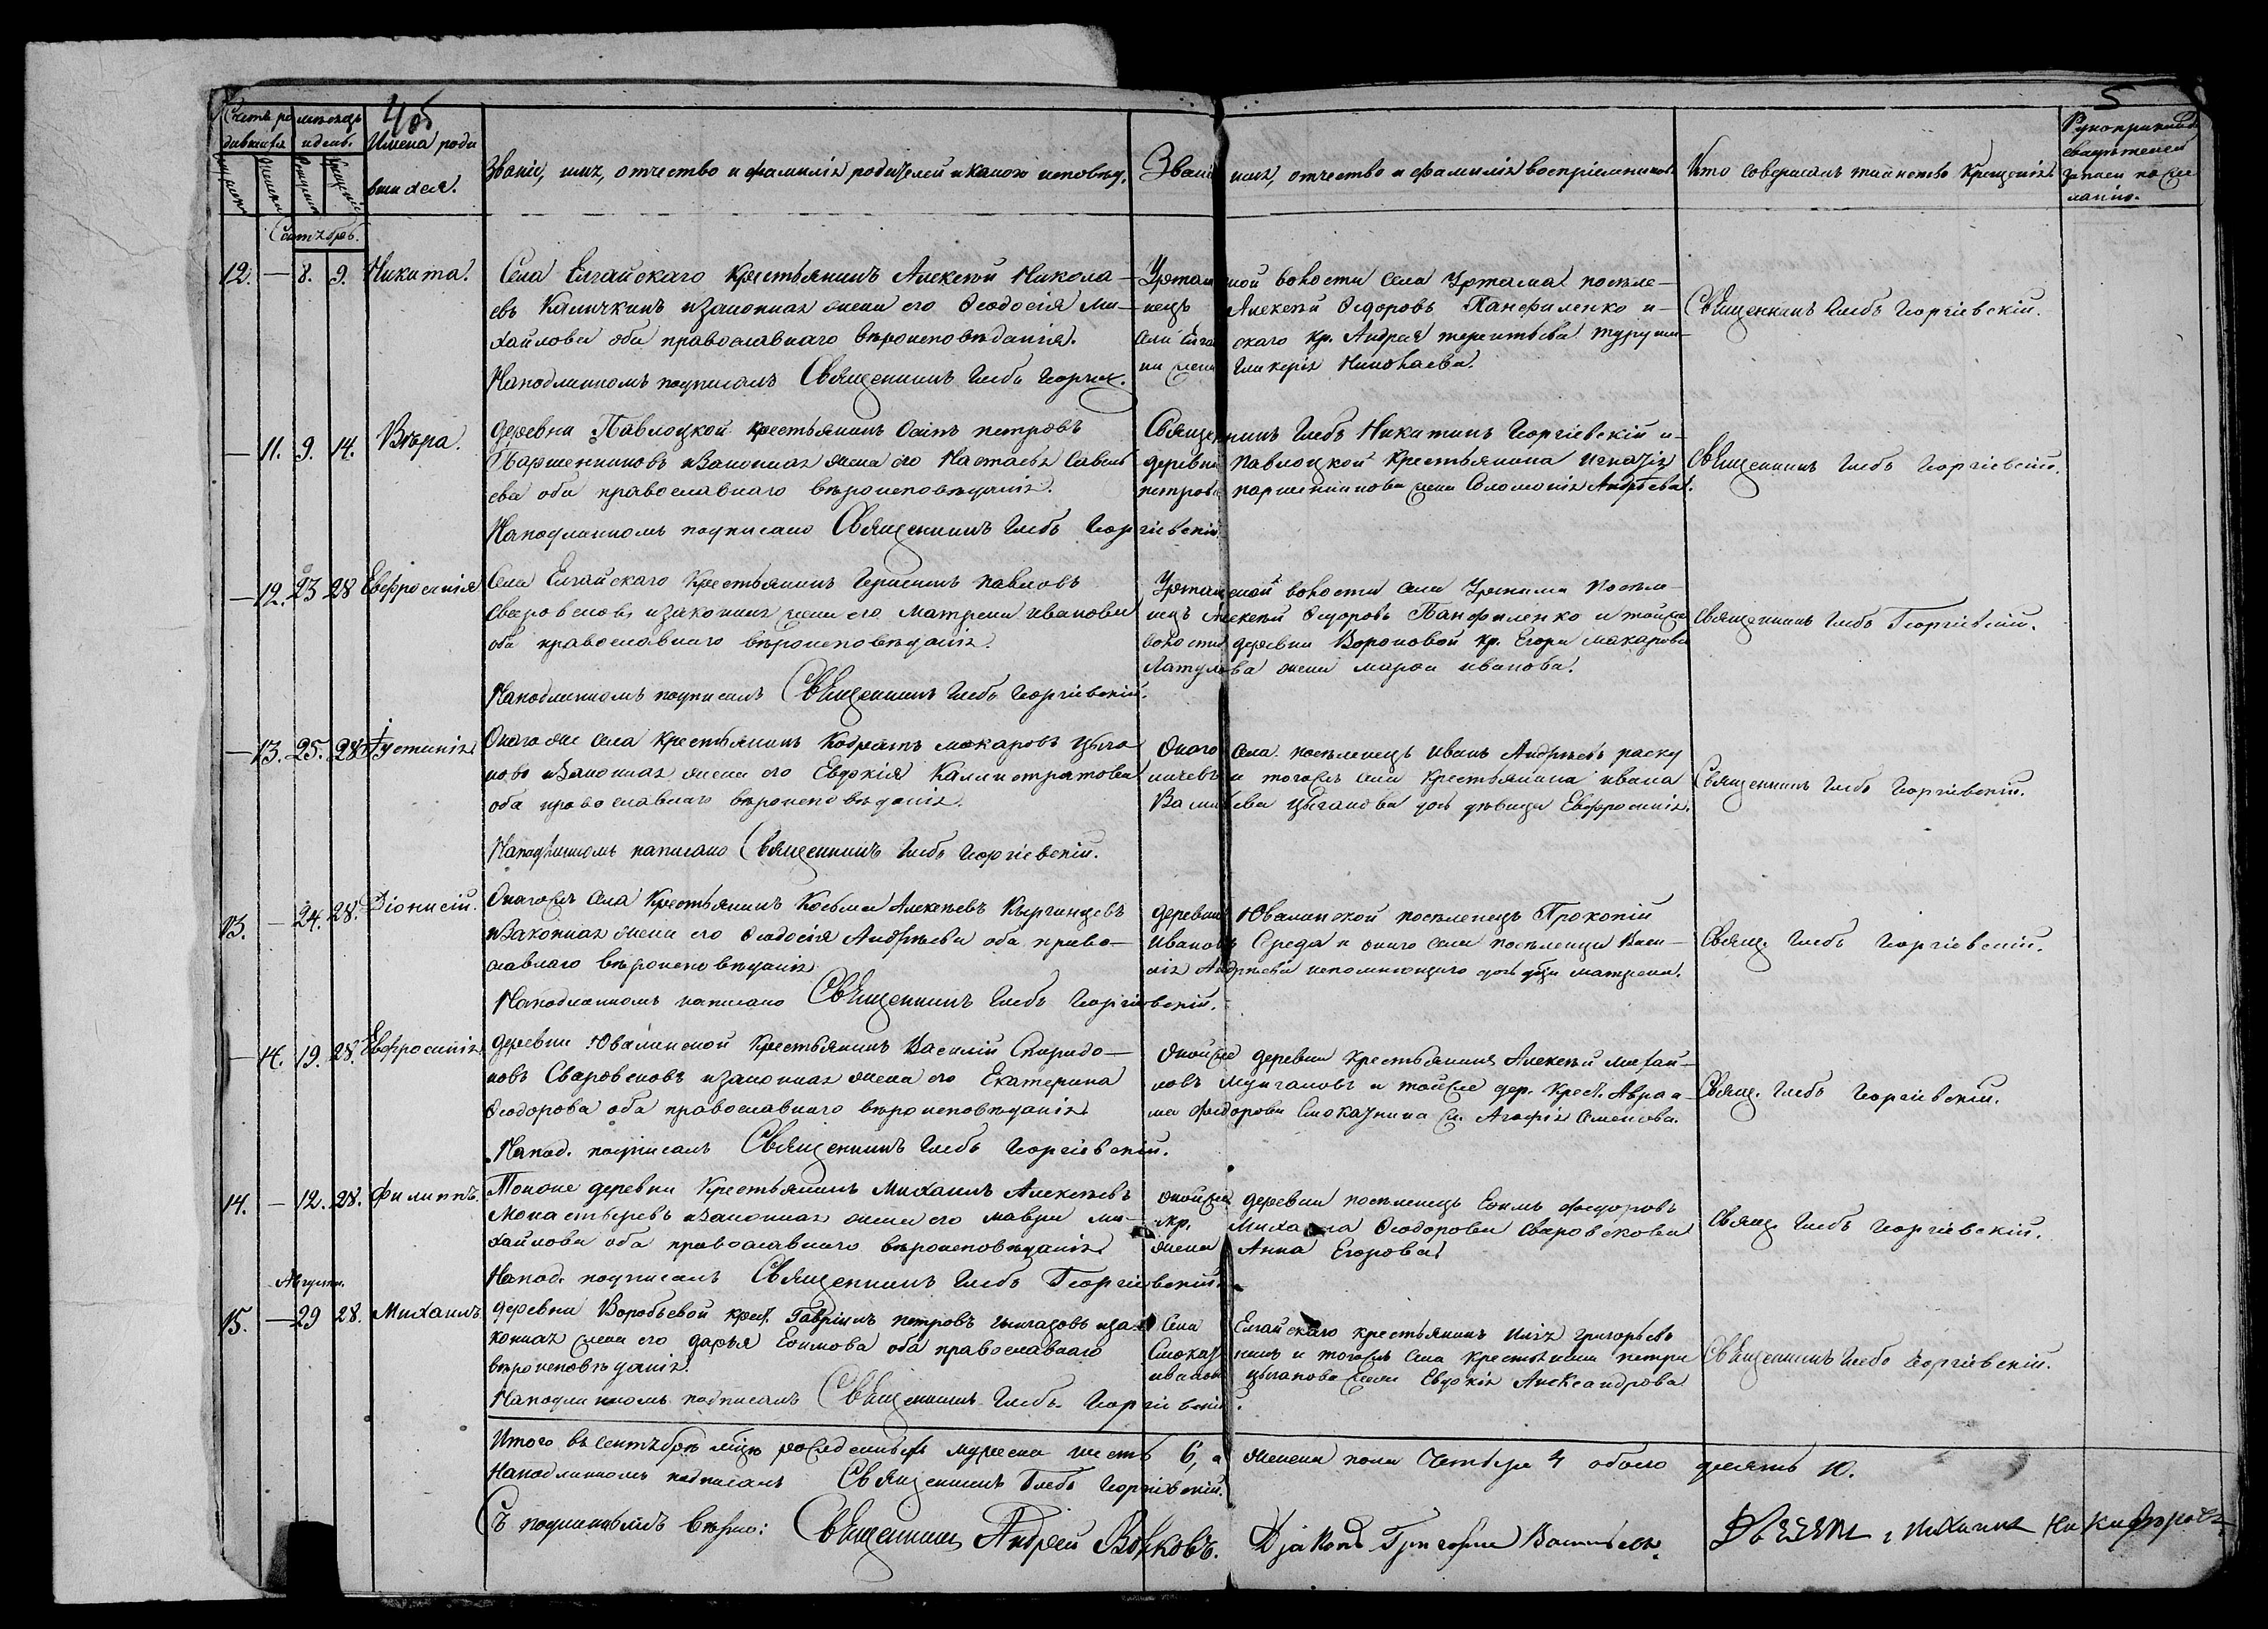 4об
5
Счетъ ро дившихся
Мѣсяцъ и день.
Имена роди вшихся.
Званіе, имя, отчество и фамилія родителей и какого исповѣд.
Званіе имя, отчество и фамилія воспріемниковъ.
Кто совершалъ таинство Крещенія
Рукоприкладс свидѣтелей записи по же ланію.
Сентябрь.
12. — 8. 9. Никита.
Села Елгайскаго Крестьянинъ Алексѣй Никола—
евъ Каличкинъ изаконная жена его Ѳеодосія Ми—
хайлова оба православнаго вѣроисповѣданія.
Наподлинномъ подписалъ Священникъ Глебъ Георгіе.
Уртамской волости села Уртама поселе—
нецъ Алексѣй Ѳедоровъ Панфиленко и—
села Елгайскаго кр. Андрея терентьева
жена Гликерія Николаева.
Священникъ Глебъ Георгіевскій.
— 11. 9. 14. Вѣра.
деревни Павлоцкой крестьянинъ Осипъ петровъ
Паршенниковъ изаконная жена его Настасья Савель
ева оба православнаго вѣроисповѣданія.
Наподлинномъ подписано Священникъ Глебъ Георгіевскій
Священникъ Глебъ Никитинъ Георгіевскій и—
деревни Павлоцкой Крестьянина игнатія
петрова паршенникова жена Соломонія Андрѣева.
Священникъ Глебъ Георгіевскій.
— 12. 23 28 Евфросинія
Села Елгайскаго Крестьянинъ павловъ
Сваровсковъ изаконная жена его Матрена иванова
оба православнаго вѣроисповѣданія.
Наподлинномъ подписалъ Священникъ Глебъ Георгіевскій.
Уртамской волости села Уртама Поселе—
нецъ Алексѣй Ѳедоровъ Панфиленко и тойже
волости деревни Вороновой кр. Егора макарова
Латулова жена марѳа иванова.
Священникъ Глебъ Георгіевскій.
— 13. 25. 28 Іустинія
Онагоже села крестьянинъ Кодратъ макаровъ Цыга
новъ изаконная жена его Евдокія Каллистратова
оба православнаго вѣроисповѣданія.
Наподлинномъ написано Священникъ Глебъ Георгіевскій.
Онаго села поселенецъ иванъ Андрѣевъ
и тогоже села крестьянина ивана
Васильева цыганова дочь дѣвица Евфросинія.
Священникъ Глебъ Георгіевскій.
13. — 24. 28. Діонисій.
Онагоже села Крестьянинъ Косьма Алексѣевъ Кыргинцевъ
изаконная жена его Ѳеодосія Андрѣева оба право—
славнаго вѣроисповѣданія
Наподлинномъ написано Священникъ Глебъ Георгіевскій.
деревни Ювалинской поселенецъ Прокопій
Ивановъ Среда и онаго села поселенца Васи—
лія Андрѣева непомнющаго дочь дѣвца матрена.
Свящ. Глебъ Георгіевскій.
— 14. 19. 28. Евфросинія
деревни Ювалинской Крестьянинъ Василій Спиридо—
новъ Сваровсковъ изаконная жена его Екатерина
Ѳеодорова оба православнаго вѣроисповѣданія.
Напод. подписалъ Священникъ Глебъ Георгіевскій.
Онойже деревни Крестьянинъ Алексѣй михай—
ловъ Мунгаловъ и тойже дер. Крест. Авраа—
ма федорова Смокатнина ж. Агафія Семенова.
Свящ. Глебъ Георгіевскій.
14. — 12. 28. Филиппъ.
Тоюже деревни Крестьянинъ Михаилъ Алексѣевъ
Монастыревъ изаконная жена его мавра ми—
хайлова оба православнаго вѣроисповѣданія
Напод. подписалъ Священникъ Глебъ Георгіевскій.
Онойже деревни поселенецъ Еѳимъ федоровъ
кр. Михаила Ѳеодорова Сваровскова
жена Анна Егорова.
Свящ. Глебъ Георгіевскій.
Августа.
15. — 29 28. Михаилъ
деревни Воробьевой крест. Гавріилъ петровъ иза—
конная жена его дарья Еѳимова оба православнаго
вѣроисповѣданія.
Наподлинномъ подписалъ Священникъ Глебъ Георгіевскій.
Села Елгайскаго крестьянинъ Илія григорьевъ
Смокатнинъ и тогоже села крестьянина петра
иванова цыганова жена Евдокія Александрова
Священникъ Глебъ Георгіевскій.
Итого въ сентябрѣ мцѣ мужеска шесть 6, а женска пола Четыре 4 обоего десять 10.
Наподлинномъ подписалъ Священникъ Глебъ Георгіевскій.
Съ подлиннымъ вѣрно: Священникъ Андрей Волковъ. Діаконъ Григорій Васильевъ. Михаилъ Никифоровъ